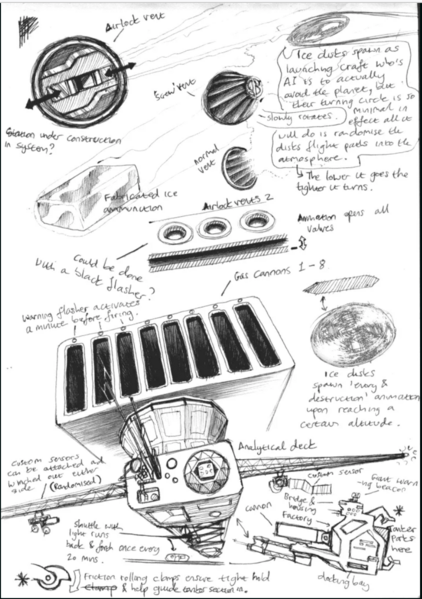 Airlock vent
Station under construction
in system?
Screw vent
slowly rotates.
normal
vent
Ice disks spawn as
launching craft who's
AI is to actually
avoid the planet, but
their turning circle is so
minimal in
effect all it
will do is randomise the
disks flight paths into the
atmosphere.
The lower it goes the
tighter it turns.
Fabricated ice
ammunition
Airlock vents 2
Animation opens all
valves
Could be done
with a black flasher?
Gas Cannons 1-8
Warning flasher activates
a minute before firing.
Ice disks
spawn 'every &
destruction' animation
upon reaching a
certain altitude.
Analytical deck
Custom sensors
can be attached and
winched out either
side (Randomised)
Custom sensor
Bridge &
housing
Factory
Cannon
beacon
Tanker
Parts
here
docking bay
Shuttle with
light runs
back & forth once every
20 mins.
Friction rolling clamps ensure tight hold
& help guide tanker section in.